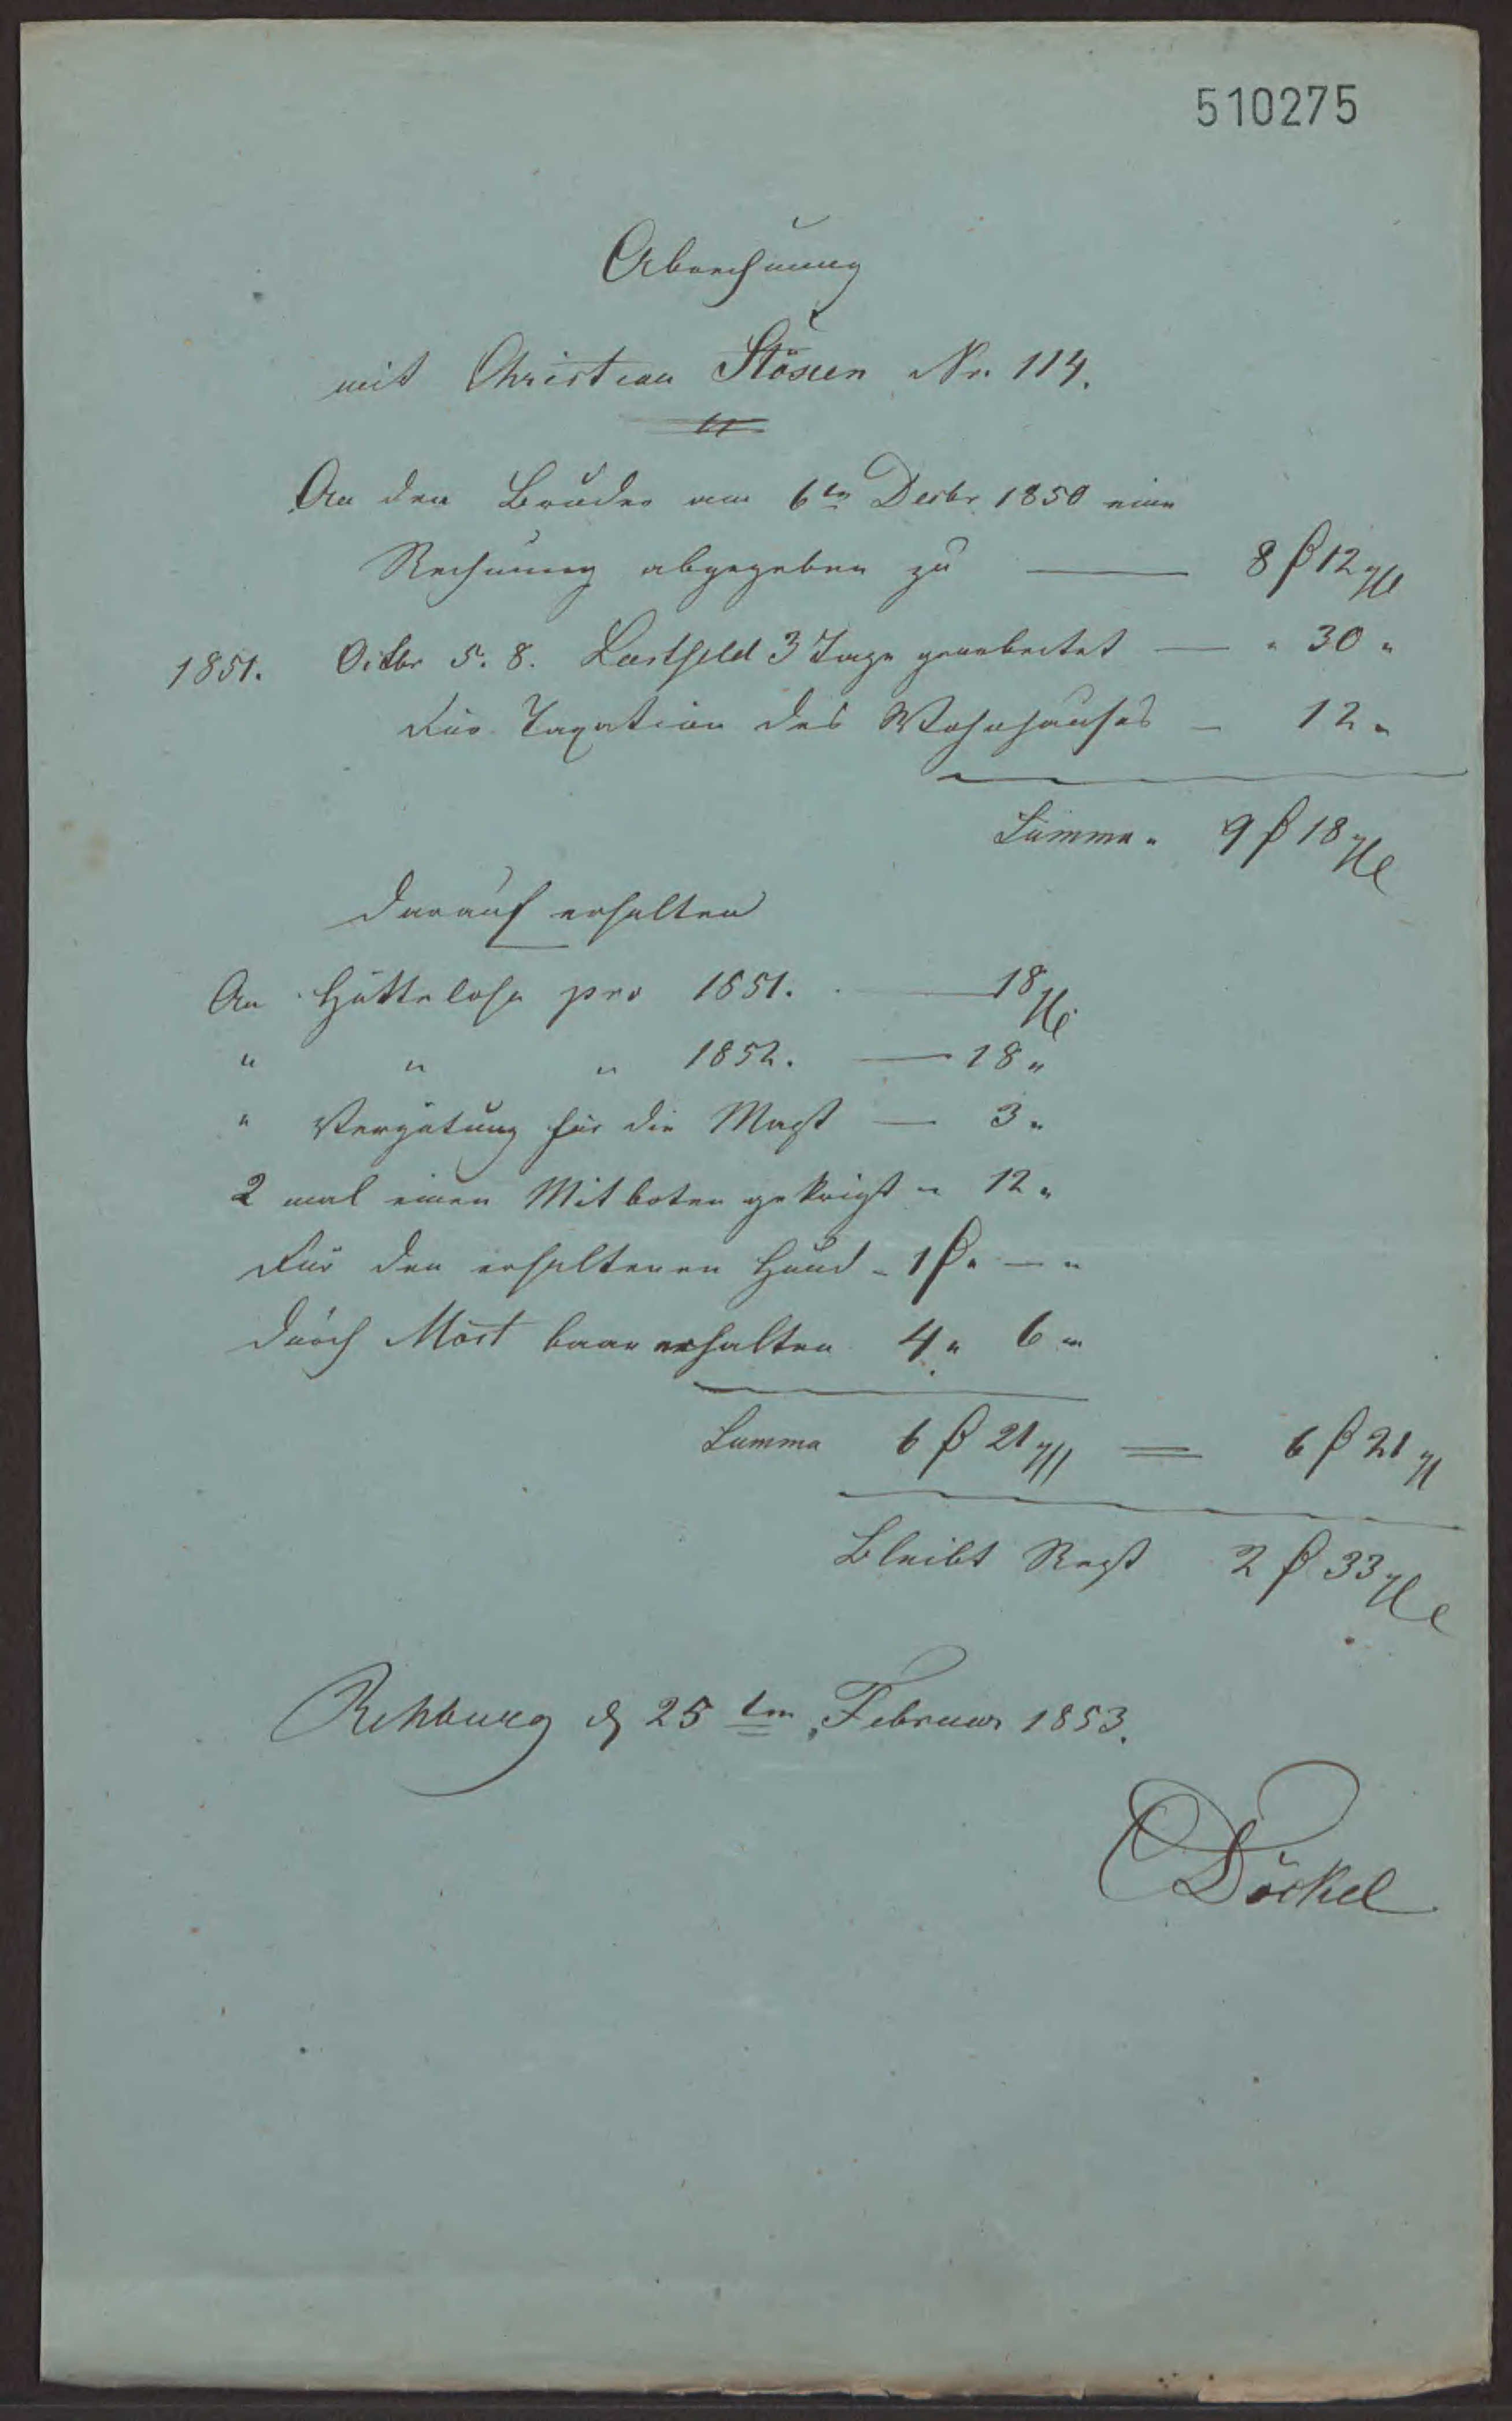 510275
Abrechnung
mit Christian Stösen Nr. 114.
An den Bruder am 6ten Decbr 1850 eine
Rechnung abgegeben zu — 8 β 12
1851. Octbr 5. 8. 3 Tage gearbeitet — " 30 "
Für Taxation des Wohnhauses — 12 "
Summa " 9 β 18
Darauf erhalten
An pro 1851. — 18
" " " 1852. — 18 "
" Vergütung für die — 3 "
2 mal einen Mitboten gekrigt " 12 "
Für den erhaltenen Hund - 1 β " — "
Durch baar erhalten 4 " 6 "
Summa 6 β 21 = 6 β 21
Bleibt Rest 2 β 33
Rehburg d 25ten Februar 1853.